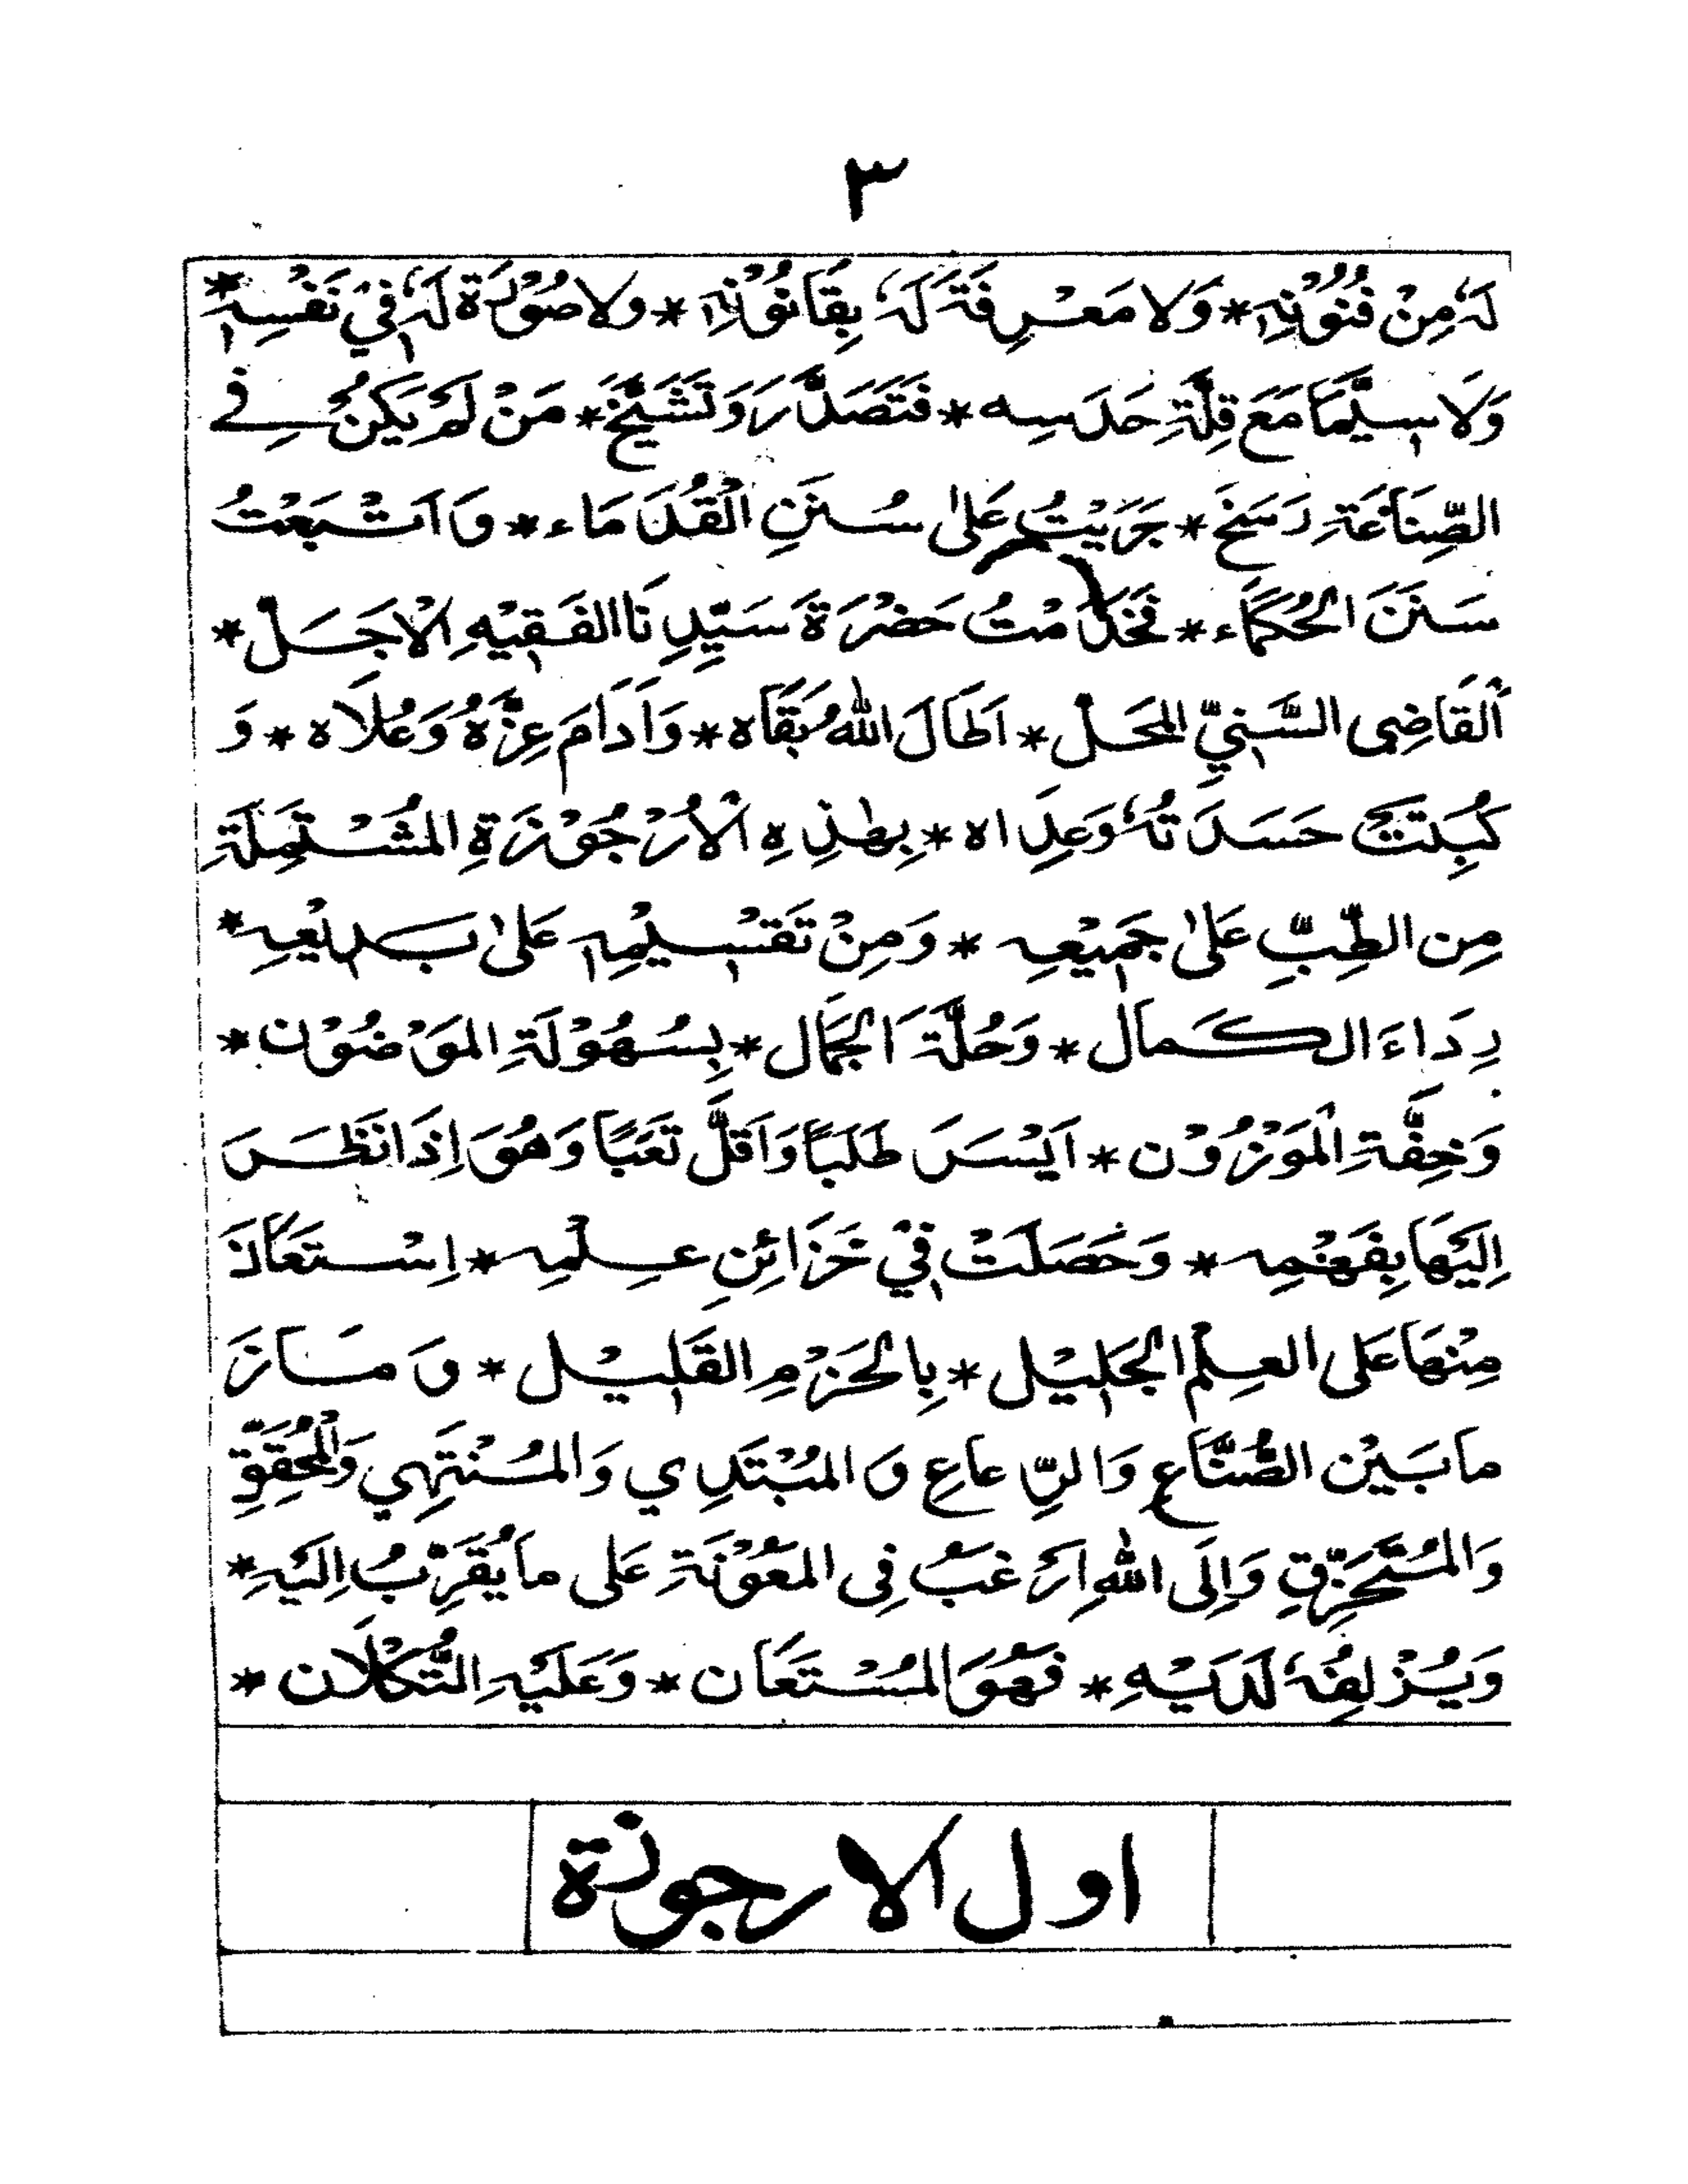 ٣
لَهٗ مِنْ فُنُوْنِهٖ * وَلا مَعْرِفَةَ لَهٗ بِقَانُوْنِهٖ * ولا صُوْرَة لَهٗ فِيْ نَفْسِهٖ *
وَلَا سِيَّمَا مَعَ قِلَّةِ حَدَسِه * فَتَصَدَّرَ وَتَشَيَّخَ * مَنْ لَمْ يَكُنْ فِي
الصِّنَاعَةِ رَسَخَ * جَرَيْتُ عَلىٰ سُنَنِ الْقُدَمَاء * وَاَتْبَعْتُ
سَنَنَ الحُكَمَاء * فَخَدَمْتُ حَضْرَةَ سَيِّدِنَا الفَقِيْهِ الْاَجَلْ *
اَلقَاضِى السَّنِيِّ المَحَلْ * اَطَالَ اللّٰهُ بَقَاه * وَاَدَامَ عِزَّهُ وَعُلَاه * وَ
كُبِتَتْ حَسَدَتُهٗ وَعِدَاه * بِهٰذِهِ الْاُرْجُوْزَةِ المُشْتَمِلَةِ
مِن الطِّبِّ عَلىٰ جَمِيْعِه * وَمِنْ تَقْسِيْمِهٖ عَلىٰ بَدِيْعِه *
رِدَاءَ الكَمال * وَحُلَّةَ الجَمَال * بِسُهُوْلَةِ المَوْضُوْن *
وَخِفَّةِ الْمَوْزُوْن * اَيْسَرَ طَلَبًا وَاَقَلَّ تَعَبًا وَهُوَ اِذَا نَظَرَ
اِلَيْهَا بِفَهْمِه * وَحَصَلَتْ فِيْ خَزَائِنِ عِلْمِه * اِسْتَعَانَ
مِنْهَا عَلى العِلْمِ الجَلِيْل * بِالحَزْمِ القَلِيْل * وَ مَازَ
ما بَيْن الصُّنَّاعِ وَالرِّعاعِ وَ المُبْتَدِي وَالمُنْتَهِي وَالْمُحَقِّقِ
وَالمُتَحَزِّقِ وَاِلَى اللّٰهِ اَرْغَبُ فِى المَعُوْنَةِ عَلى ما يُقَرِّبُ اِلَيْهِ *
وَيُزْلِفُهٗ لَدَيْهِ * فَهُوَ المُسْتَعَان * وَعَلَيْهِ التُّكْلَان *
اول الارجوزة